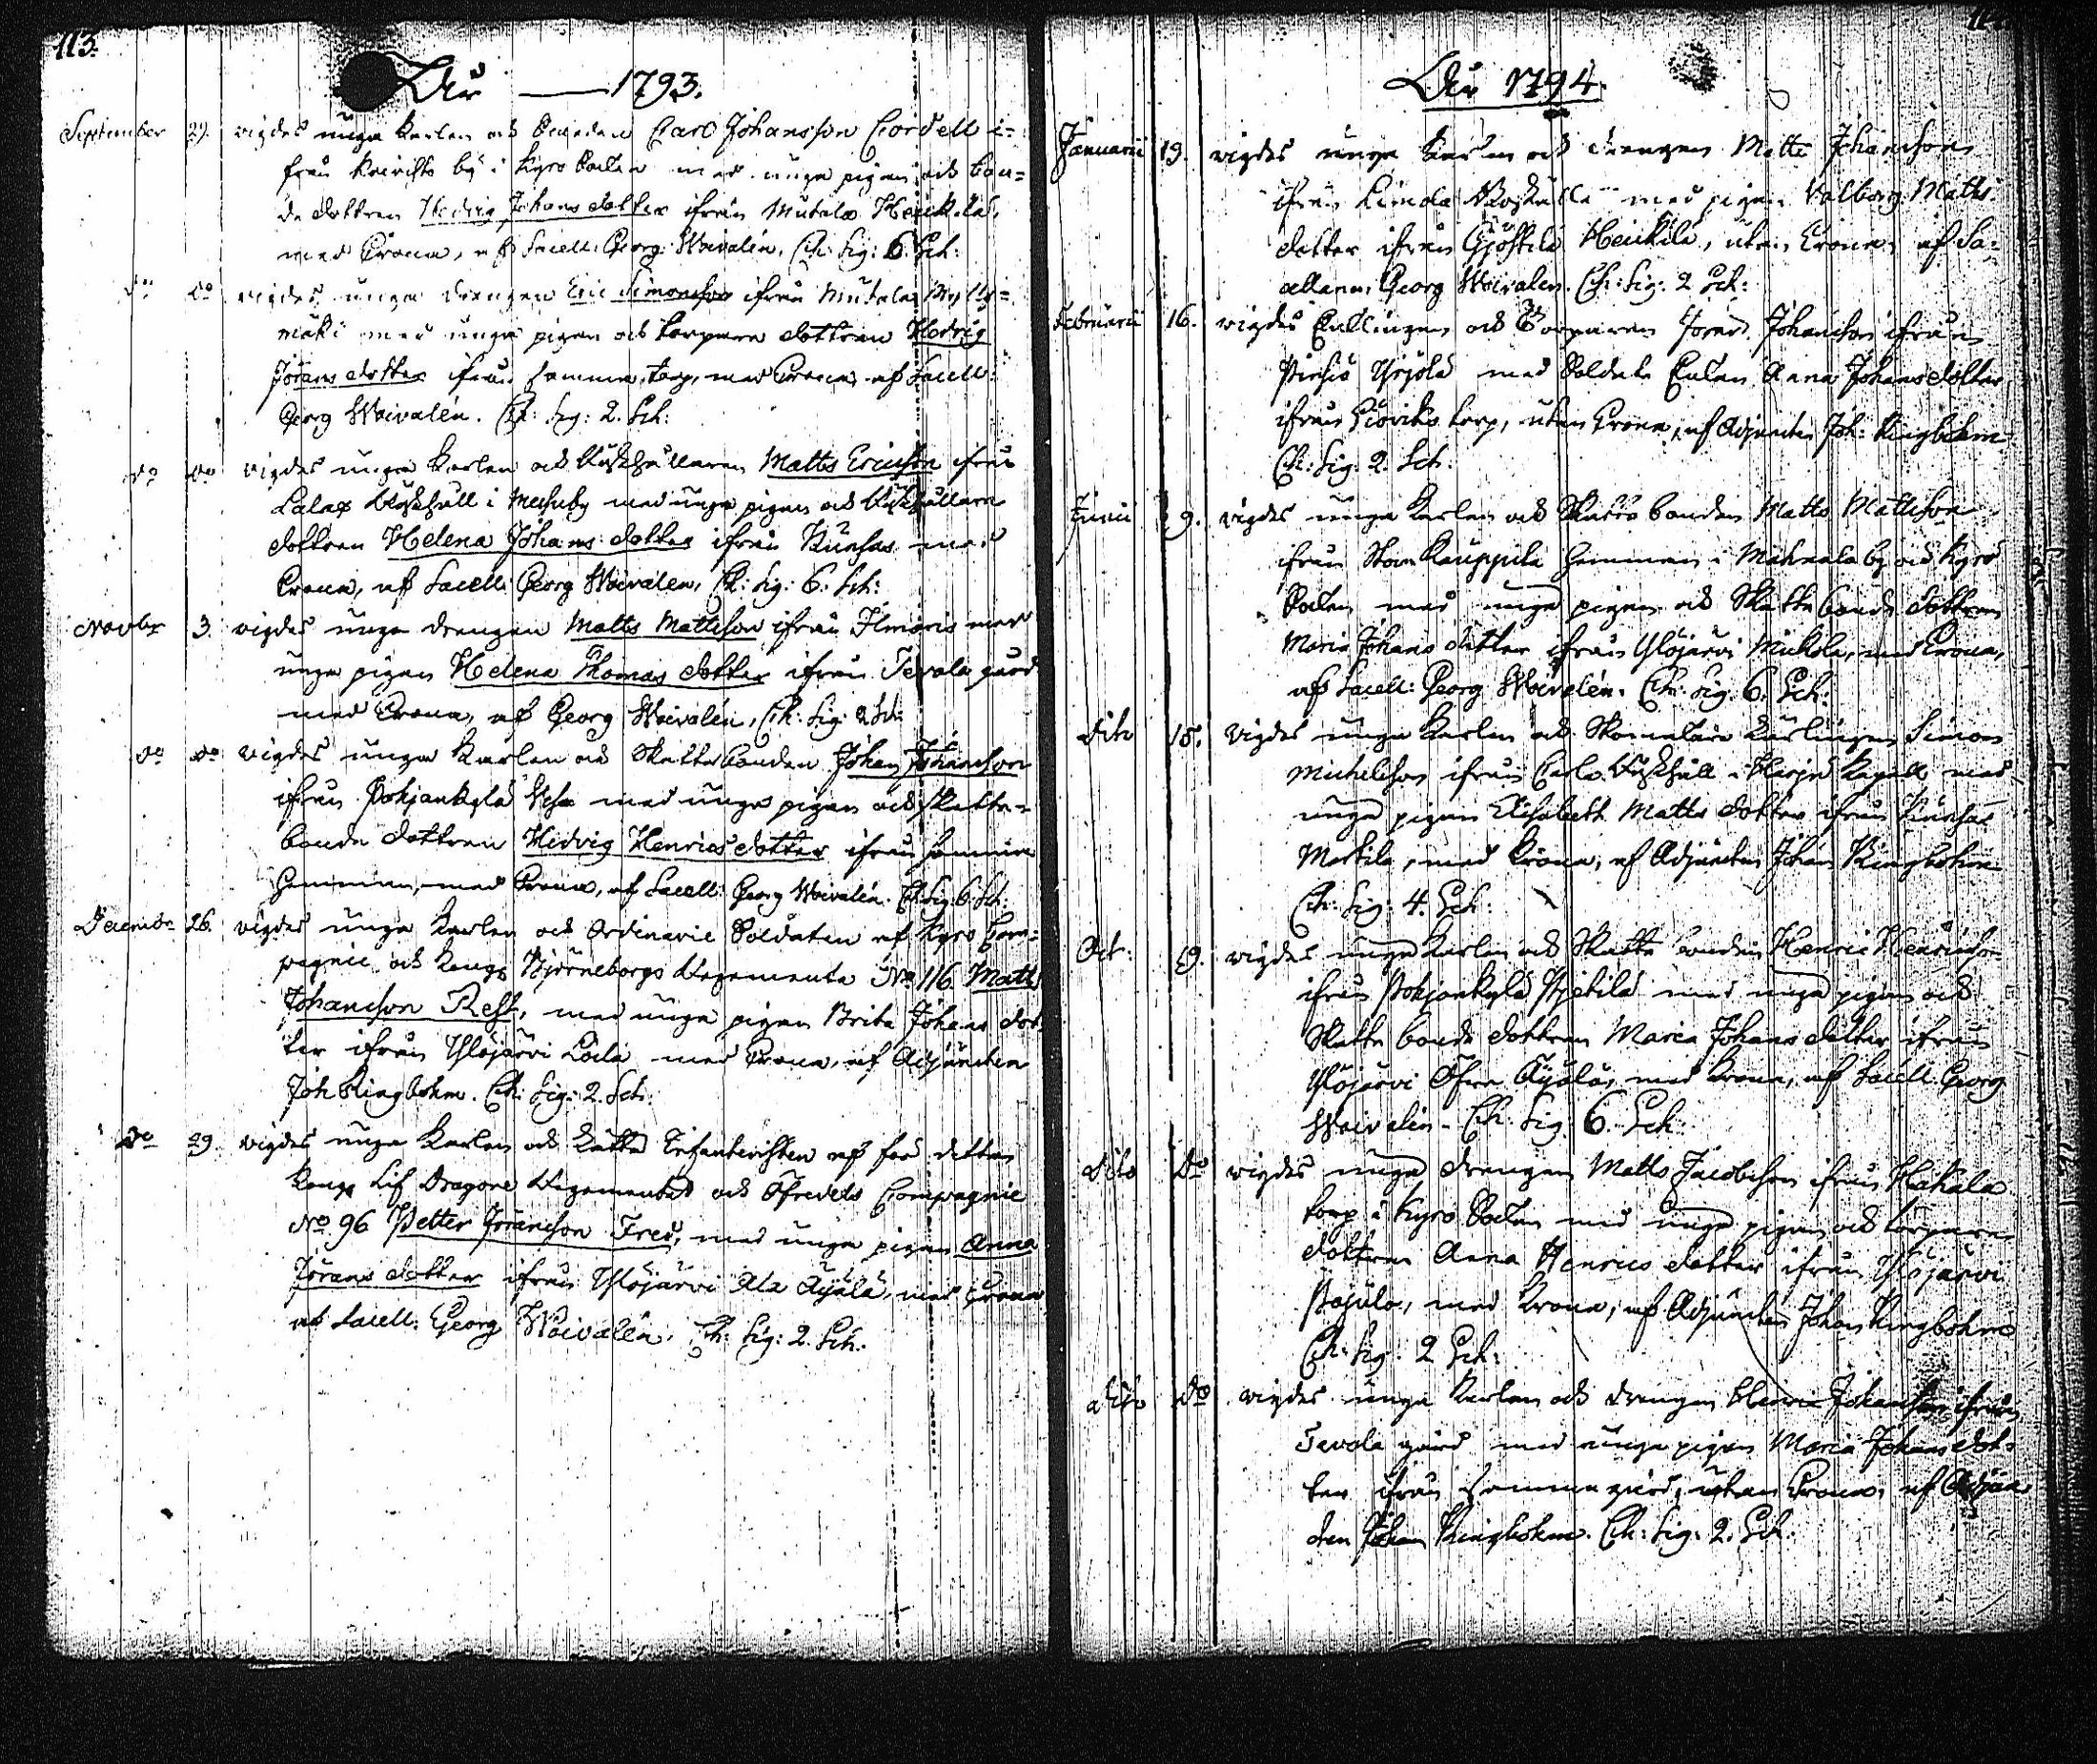 113.
År — 1793.
September 29. vigdes unga Karlen och Smeden Carl Johansson Cordell i-
från by i Kyro Socken med unga pigan och bon-
de dottren Hedvig Johans dotter ifrån Mutala Heikkilä,
med Crona, af Sacell: Georg Woivalén, Ch: Sig: 6. Sch:
do do vigdes unga drengen Eric Simonsson ifrån Mutala
mäki med unga pigan och torpare dottren Hedvig
Jörans dotter ifrån samma torp, med Crona af Sacell:
Georg Woivalén. Ch: Sig: 2. Sch:
do do vigdes unga Karlen och Rusthållaren Matts Ericsson ifrån
Lalax Rusthåll i med unga pigan och Rusthållare
dottren Helena Johans dotter ifrån Kuusas med
Crona, af Sacell: Georg Woivalén, Ch: Sig: 6. Sch:
Novbr 3. vigdes unga drengen Matts Mattsson ifrån Ilmaris med
unga pigan Helena Thomas dotter ifrån Tevala gård
med Crona, af Georg Woivalén, Ch: Sig: 2 Sch:
do do vigdes unga Karlen och Skattebonden Johan Johansson
ifrån Pohjankylä med unga pigan och skatte-
bonde dottren Hedvig Henrics dotter ifrån samma
Hemman, med Crona, af Sacell: Georg Woivalén. Ch: Sig: 6. Sch:
Decembr 26. vigdes unga Karlen och Ordinarie Soldaten af Kyro Com-
pagnie och Kongl Björneborgs Regemente No 116. Matts
Johansson Rest, med unga pigan Brita Johans dot
ter ifrån Ylöjärvi Låcla med Crona, af Adjuncten
Joh Ringbohm. Ch: Sig: 2. Sch:
do 29. vigdes unga Karlen och Infanteristen af förr detta
Kongl Lif Dragone Regementet och Öfrevets Compagnie
No 96 Petter Jöransson Fred, med unga pigan Anna
Jörans dotter ifrån Ylöjärvi Ala Äijälä, med Crona
af Sacell: Georg Woivalén. Ch: Sig: 2. Sch:
År 1794.
Januarii 19. vigdes unga Karlen och drengen Matts Johansson
ifrån med pigan Valborg Matts
dotter ifrån Heikkilä, utan Crona, af Sa-
cellanen Georg Woivalén. Ch: Sig: 2 Sch:
Februarii 16. vigdes Enklingen och Torparen Jöran Johansson ifrån
Yrjölä med Soldate Enkan Anna Johans dotter
ifrån torp, utan Crona, af Adjuncten Joh: Ringbohm
Ch: Sig: 2. Sch:
Junii 9. vigdes unga Karlen och Skatte bonden Matts Mattsson
ifrån Stor Kauppila Hemman i Mahnala by och Kyrö
Socken med unga pigan och Skatte bonde dottren
Maria Johans dotter ifrån Ylöjärvi Mikkola, med Crona,
af Sacell: Georg Woivalén. Ch: Sig: 6. Sch:
dito 15. vigdes unga Karlen och Skomakare Lärlingen Simon
Michelsson ifrån Carlo Rusthåll i Kapell med
unga pigan Elisabeth Matts dotter ifrån Kuusas
Markila, med Krona, af Adjuncten Johan Ringbohm
Ch: Sig: 4. Sch:
Oct: 19. vigdes unga Karlen och Skatte bonden Henric Henricsson
ifrån Pohjankylä Pjetilä med unga pigan och
Skatte bonde dottren Maria Johans dotter ifrån
Ylöjärvi Öfre Äijälä, med Krona, af Sacell: Georg
Woivalén. Ch: Sig: 6. Sch:
dito Do vigdes unga drengen Matts Jacobsson ifrån Hakala
torp i Kyro Socken med unga pigan och torpare
dottren Anna Henrics dotter ifrån Ylöjärvi
Pajula, med Krona, af Adjuncten Johan Ringbohm
Ch: Sig: 2 Sch:
dito Do vigdes unga Karlen och drengen Henric Johansson ifrån
Tevala gård med unga pigan Maria Johans dot-
ter ifrån samma gård, utan Crona, af Adjunc
ten Johan Ringbohm. Ch: Sig: 2. Sch: